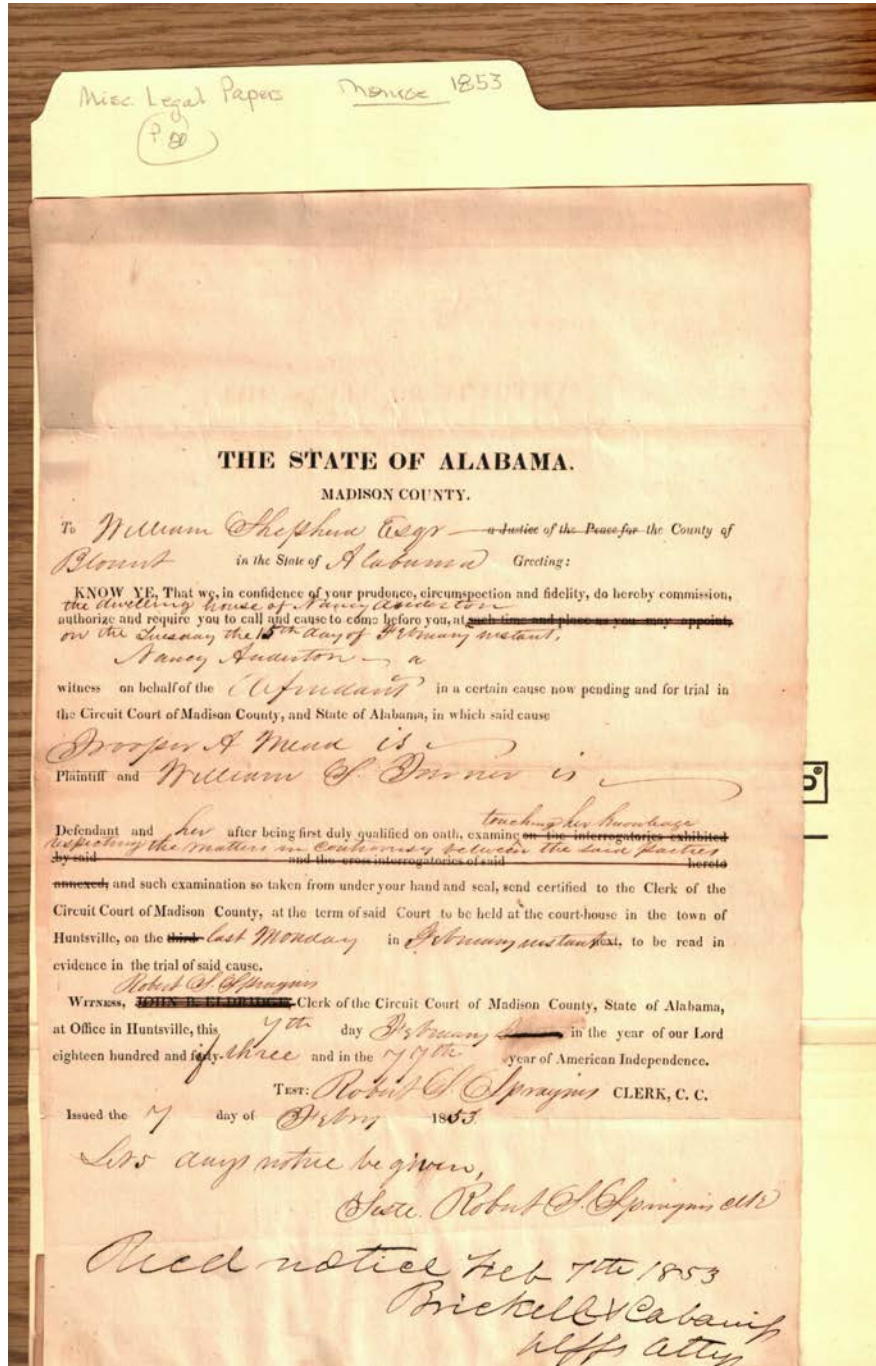 Misc. Legal Papers Monroe 1853
P. 20
THE STATE OF ALABAMA.
MADISON COUNTY.
To William Shepherd Esqr a Justice of the Peace for the County of
Blount in the State of Alabama Greeting:
KNOW YE, That we, in confidence of your prudence, circumspection and fidelity, do hereby commission,
the dwelling house of Nancy Anderton
authorize and require you to call and cause to come before you, at such time and place as you may appoint,
on the Tuesday the 15th day of February instant,
Nancy Anderton a
witness on behalf of the Defendant in a certain cause now pending and for trial in
the Circuit Court of Madison County, and State of Alabama, in which said cause
A Mead is
Plaintiff and William S. is
touching her knowledge
Defendant and her after being first duly qualified on oath, examine on the interrogatories exhibited
respecting the matters in controversy between the said parties
by said and the cross interrogatories of said hereto
annexed, and such examination so taken from under your hand and seal, send certified to the Clerk of the
Circuit Court of Madison County, at the term of said Court to be held at the court-house in the town of
Huntsville, on the third last Monday in February instant next, to be read in
evidence in the trial of said cause.
Robert S. Spragins
WITNESS, JOHN B. ELDRIDGE Clerk of the Circuit Court of Madison County, State of Alabama,
at Office in Huntsville, this 7th day February in the year of our Lord
eighteen hundred and fifty-three and in the 77th year of American Independence.
TEST: Robert S. Spragins CLERK, C. C.
Issued the 7 day of Febry 1853
Let 5 days notice be given,
Teste. Robert S. Spragins clk
Recd notice Feb 7th 1853
Brickell & Cabaniss
Plffs Attys